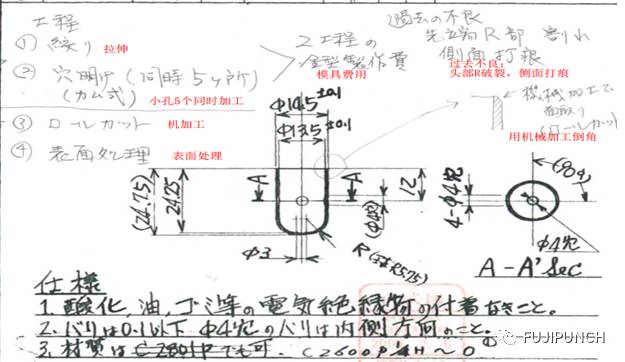 工程
① 絞り 拉伸
② 穴明け(同時5ヶ所)
(カム式) 小孔5个同时加工
③ ロールカット 机加工
④ 表面処理 表面处理
2工程の
金型製作費
模具费用
過去の不良
先端R部 割れ
側面打痕
过去不良:
头部R破裂,侧面打痕
機械加工で
面取り
(ロールカット)
用机械加工倒角
Φ14.5±0.1
Φ13.5±0.1
(24.75)
24.25
A
A
12
(Φ4穴)
4-Φ4穴
(90°)
Φ3
Φ4穴
A-A' Sec
仕様
1. 酸化、油、ゴミ等の電気絶縁物の付着なきこと。
2. バリは0.1以下 Φ4穴のバリは内側方向のこと。
3. 材質はC2801Pでも可. C2600P 1/4H~0
FUJIPUNCH